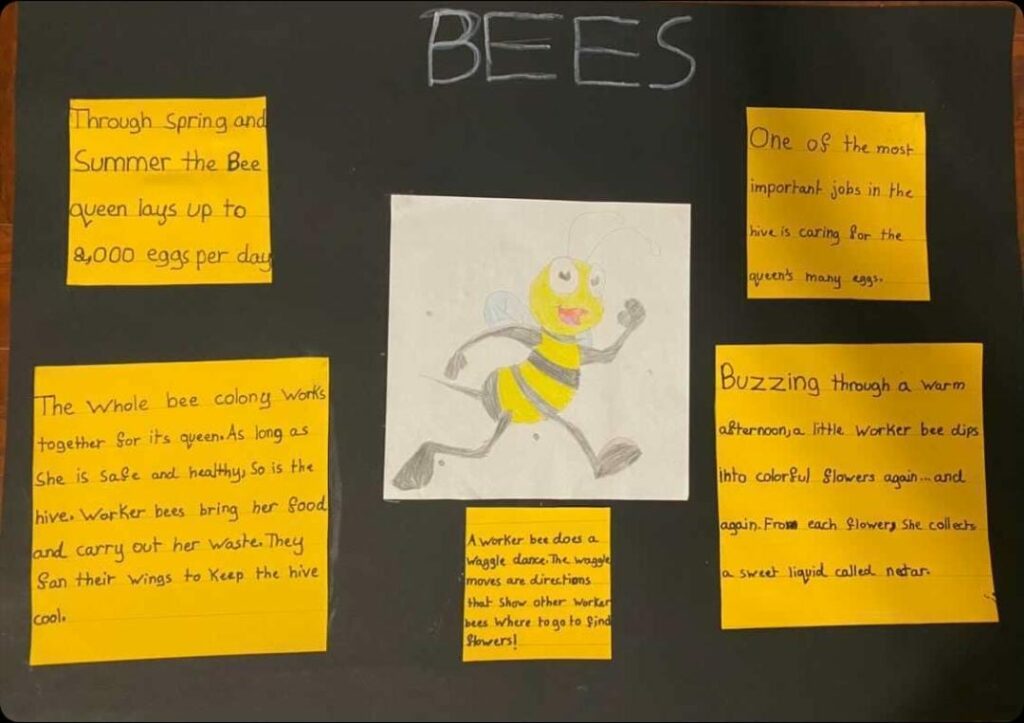 BEES
Through Spring and
Summer the Bee
queen lays up to
2,000 eggs per day
One of the most
important jobs in the
hive is caring for the
queen's many eggs.
The Whole bee colony works
together for its queen. As long as
She is safe and healthy, So is the
hive. Worker bees bring her food
and carry out her waste. They
fan their wings to keep the hive
cool.
A worker bee does a
waggle dance. The waggle
moves are directions
that show other worker
bees where to go to find
flowers!
Buzzing through a warm
afternoon, a little worker bee dips
into colorful flowers again... and
again. From each flower, She collects
a sweet liquid called netar.